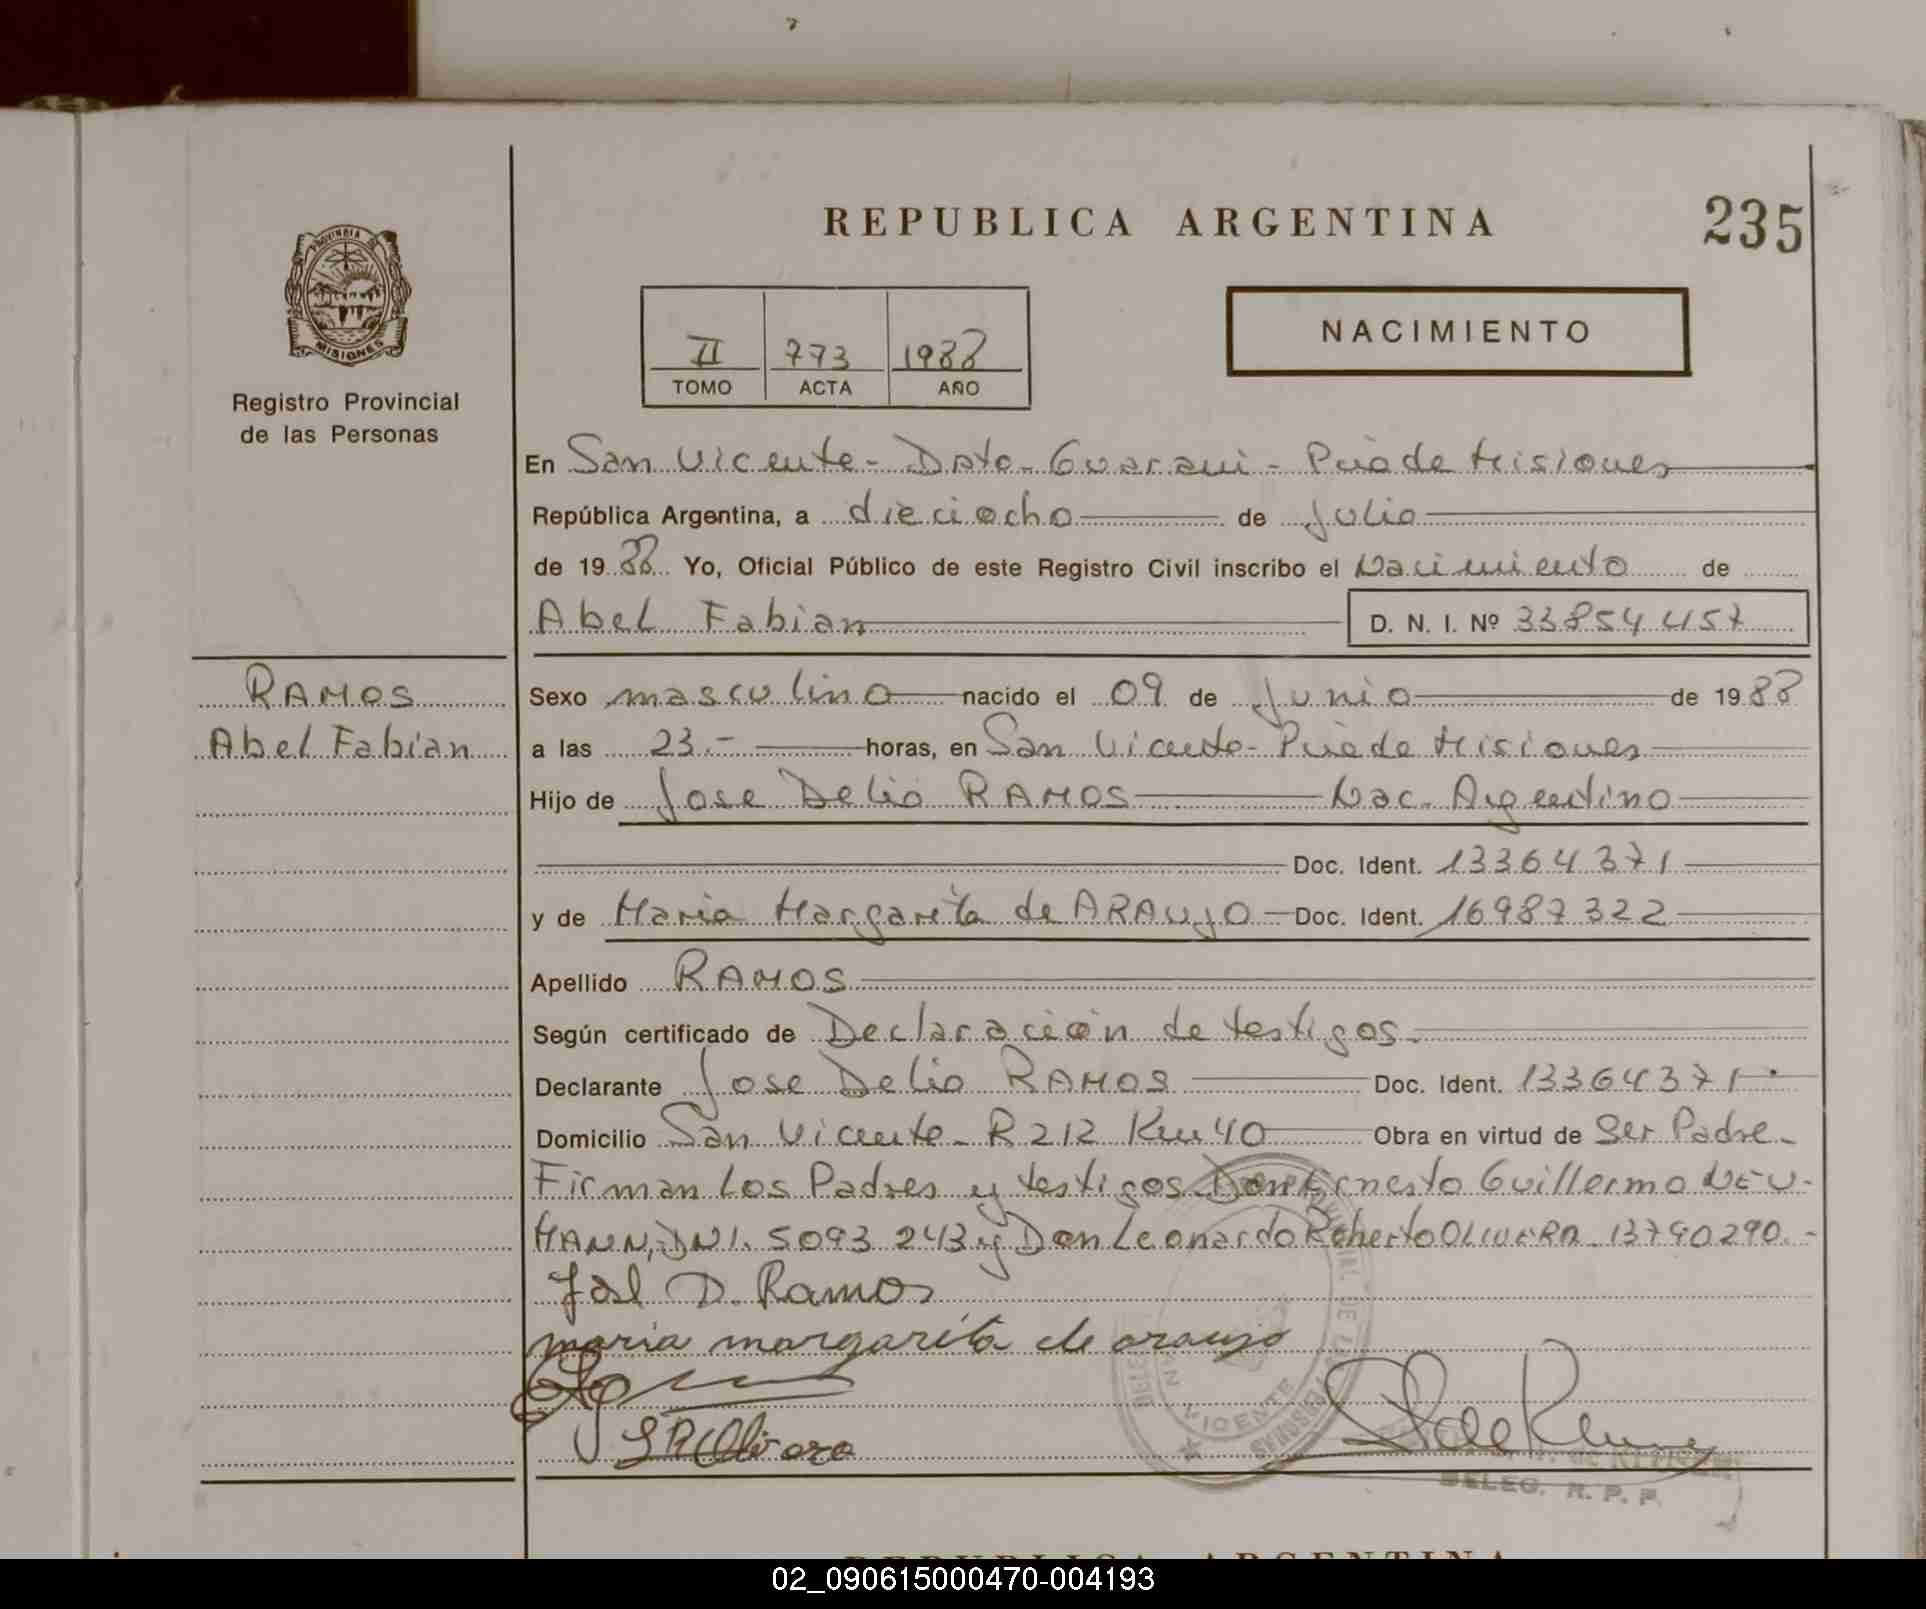 REPUBLICA ARGENTINA
235
MISIONES
Registro Provincial
de las Personas
II 773 1988
TOMO ACTA AÑO
NACIMIENTO
En San Vicente - Dpto. Guarani - Pcia de Misiones
República Argentina, a dieciocho de Julio
de 1988 Yo, Oficial Público de este Registro Civil inscribo el Nacimiento de
Abel Fabian D. N. I. Nº 33854457
RAMOS
Abel Fabian
Sexo masculino nacido el 09 de Junio de 1988
a las 23.- horas, en San Vicente - Pcia de Misiones
Hijo de Jose Delio RAMOS Nac. Argentino
Doc. Ident. 13364371
y de Maria Margarita de ARAUJO - Doc. Ident. 16987322
Apellido RAMOS
Según certificado de Declaración de testigos.
Declarante Jose Delio RAMOS Doc. Ident. 13364371.
Domicilio San Vicente - R 212 Km 40 Obra en virtud de Ser Padre -
Firman los Padres y testigos Don Ernesto Guillermo NEU-
MANN, DNI. 5093243 y Don Leonardo Roberto OLIVERA. 13790290.-
José D. Ramos
maria margarita de araujo
L R Olivera
VICENTE
MISIONES
DELEG. R. P. P.
REPUBLICA ARGENTINA
02_090615000470-004193